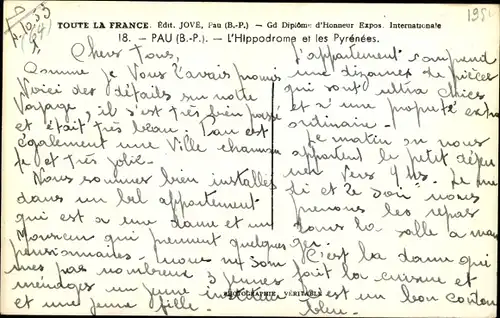 TOUTE LA FRANCE. Édit. JOVÉ, Pau (B.-P.) - Gd Diplôme d'Honneur Expos. Internationale
18. - PAU (B.-P.). - L'Hippodrome et les Pyrénées.
Chers Tous,
Comme je vous l'avais promis
Voici des détails sur notre
Voyage, il s'est très bien passé
et était très beau. Pau est
également une ville charman
te et très jolie.
Nous sommes bien installés
dans un bel appartement
qui est à une dame et un
Monsieur qui prennent quelques
pensionnaires. nous ne som
mes pas nombreux 3 jeunes
ménages un jeune
et une jeune fille.
L'appartement comprend
une dizaine de pièces
qui sont ultra chics
et d'une propreté extra
ordinaire.
Le matin on nous
apportent le petit déjeu
ner vers 9 hs. Le mi
di et le soir nous
prenons les repas
dans la salle à man
ger.
C'est la dame qui
fait la cuisine et
est un bon cordon
bleu.
PHOTOGRAPHIE VÉRITABLE